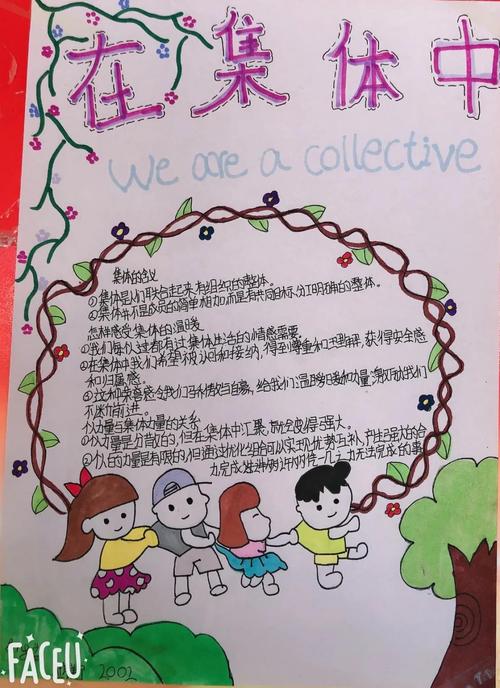 在集体中
We are a collective
集体的含义
①集体是人们联合起来,有组织的整体。
②集体并不是成员的简单相加,而是有共同目标、分工明确的整体。
怎样感受集体的温暖
①我们每个人都有过集体生活的情感需要
②在集体中我们希望被认可和接纳,得到尊重和理解,获得安全感
和归属感。
③这种荣誉感令我们自豪,给我们温暖和力量,激励我们
不断前进。
个人力量与集体力量的关系
①个人力量是分散的,但在集体中汇聚,就会变得强大。
②个人的力量是有限的,但通过优化组合可以实现优势互补,产生强大的合
力,完成许多单凭一己之力无法完成的事
FACEU
2002